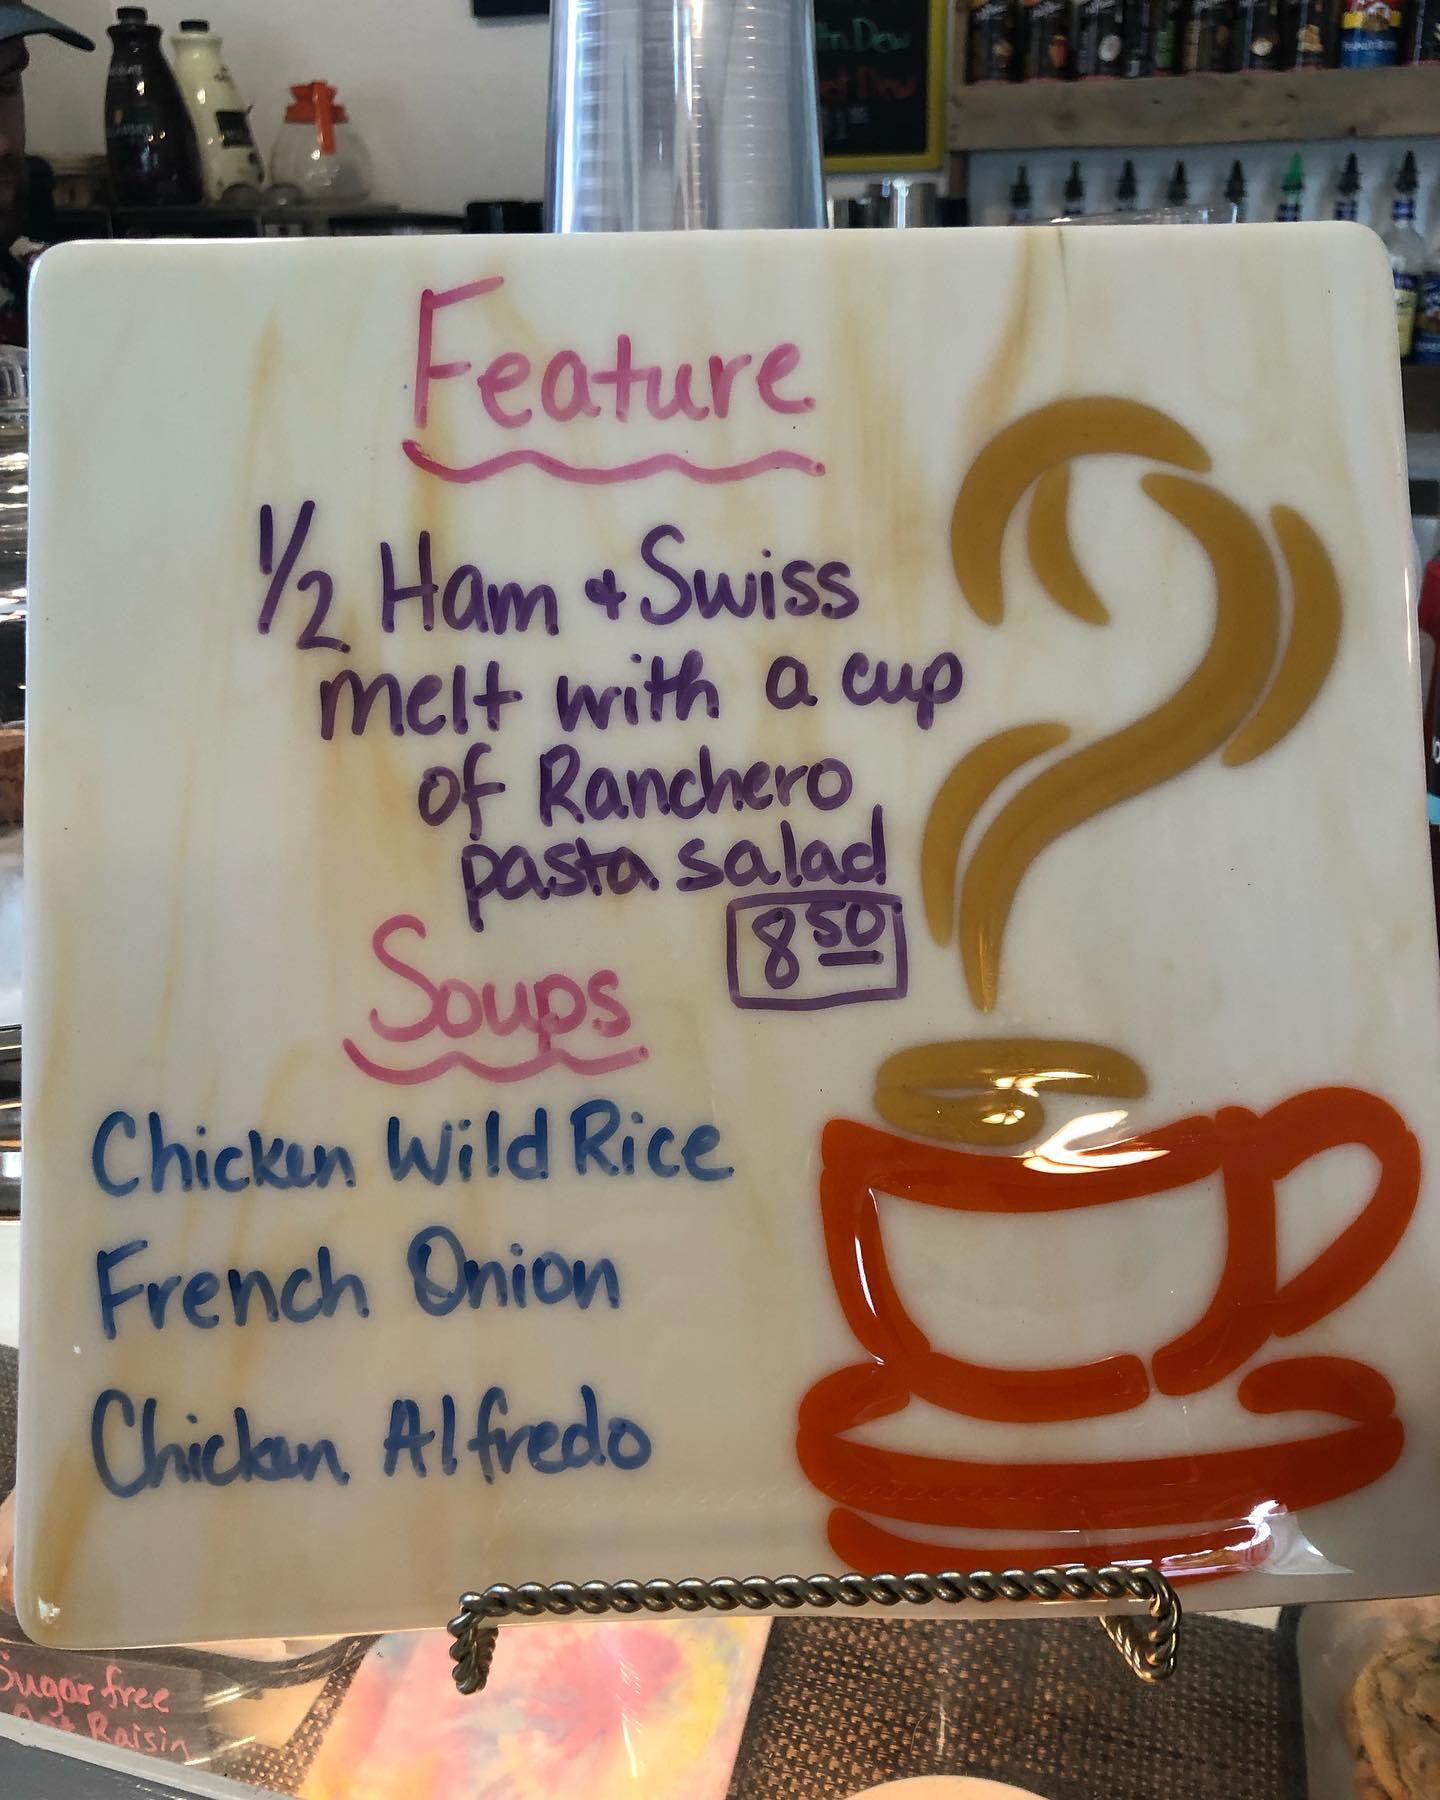 Feature
1/2 Ham & Swiss
melt with a cup
of Ranchero
pasta salad
8 50
Soups
Chicken Wild Rice
French Onion
Chicken Alfredo
Sugar free
Raisin